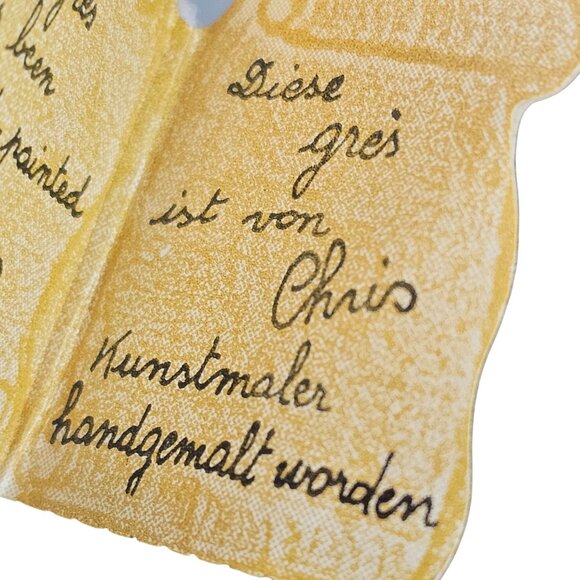 been
painted
Diese
grés
ist von
Chris
Kunstmaler
handgemalt worden